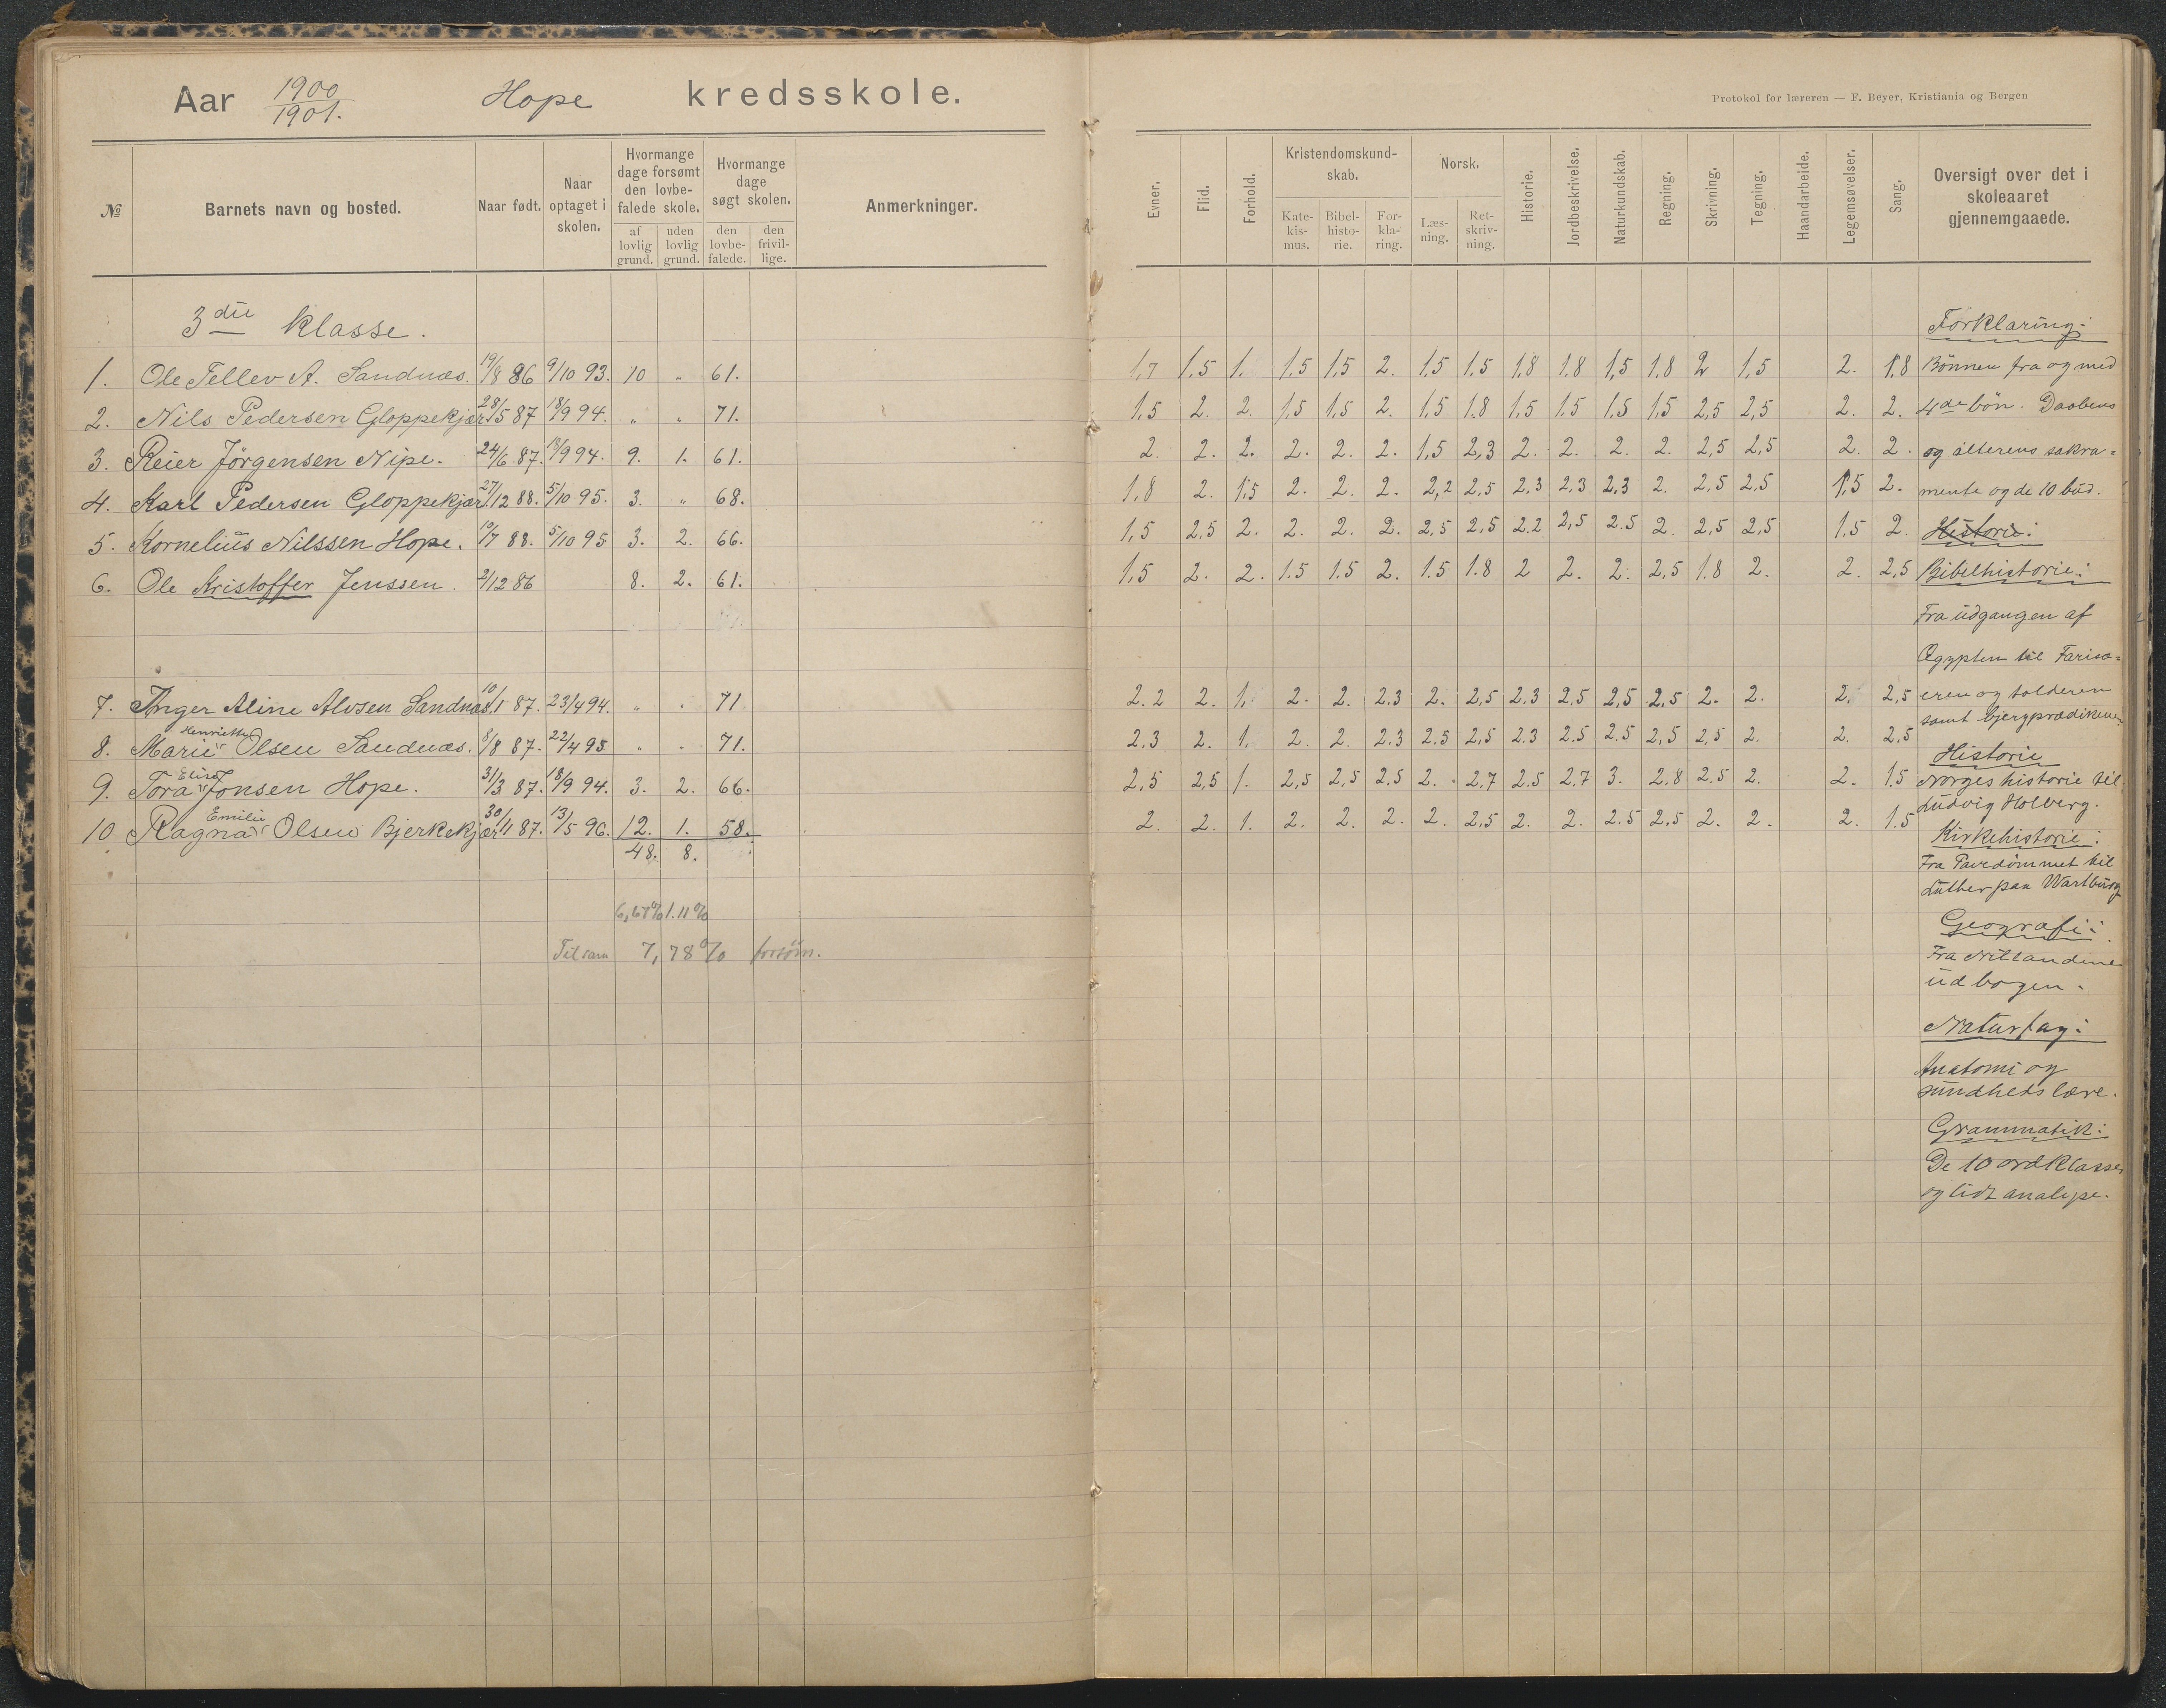 Aar 1900/1901. Hope kredsskole.
Protokol for læreren — F. Beyer, Kristiania og Bergen
№ | Barnets navn og bosted. | Naar født. | Naar optaget i skolen. | Hvormange dage forsømt den lovbefalede skole. af lovlig grund. | uden lovlig grund. | Hvormange dage søgt skolen. den lovbefalede. | den frivillige. | Anmerkninger. | Evner. | Flid. | Forhold. | Kristendomskundskab. Katekismus. | Bibelhistorie. | Forklaring. | Norsk. Læsning. | Retskrivning. | Historie. | Jordbeskrivelse. | Naturkundskab. | Regning. | Skrivning. | Tegning. | Haandarbeide. | Legemsøvelser. | Sang. | Oversigt over det i skoleaaret gjennemgaaede.
3die klasse.
1. Ole Tellev A. Sandnæs. 19/8 86 9/10 93. 10 " 61. 1,7 1.5 1. 1.5 1.5 2. 1.5 1.5 1.8 1.8 1,5 1.8 2 1,5 2. 1.8
2. Nils Pedersen Gloppekjær. 28/5 87 18/9 94. " " 71. 1.5 2. 2. 1,5 1,5 2. 1,5 1.8 1.5 1.5 1.5 1.5 2,5 2,5 2. 2.
3. Reier Jörgensen Nipe. 24/6 87. 18/9 94. 9. 1. 61. 2. 2. 2. 2. 2. 2. 1,5 2,3 2. 2. 2. 2. 2,5 2,5 2. 2.
4. Karl Pedersen Gloppekjær. 27/12 88. 5/10 95. 3. " 68. 1,8 2. 1.5 2. 2. 2. 2,2 2,5 2,3 2,3 2,3 2. 2,5 2,5 1,5 2.
5. Kornelius Nilssen Hope. 10/7 88. 5/10 95 3. 2. 66. 1,5 2,5 2. 2. 2. 2. 2,5 2,5 2.2 2,5 2.5 2. 2,5 2,5 1.5 2.
6. Ole Kristoffer Jenssen. 2/12 86 8. 2. 61. 1,5 2. 2. 1.5 1.5 2. 1.5 1.8 2 2. 2. 2,5 1.8 2. 2. 2,5
7. Inger Aline Alvsen Sandnæs. 10/1 87. 23/4 94. " " 71 2.2 2. 1. 2. 2. 2.3 2. 2,5 2.3 2,5 2,5 2,5 2. 2. 2. 2,5
Henriette
8. Marie Olsen Sandnæs. 8/8 87. 22/4 95 " " 71. 2.3 2. 1. 2. 2. 2.3 2.5 2,5 2.3 2.5 2.5 2,5 2,5 2. 2. 2.5
Elise
9. Tora Jonsen Hope. 31/3 87. 18/9 94. 3. 2. 66. 2,5 2,5 1. 2,5 2,5 2,5 2. 2.7 2.5 2.7 3. 2.8 2.5 2. 2. 1.5
Emilie
10. Ragna Olsen Bjerkekjær. 30/1 87. 13/5 96. 12. 1. 58. 2. 2. 1. 2. 2. 2. 2. 2,5 2. 2. 2.5 2.5 2. 2. 2. 1.5
48. 8.
6,67% 1.11%
Tilsam 7,78% forsöm.
Forklaring:
Bönnen fra og med
4de bön. Daabens
og alterens sakra=
mente og de 10 bud.
Historie:
Bibelhistorie:
Fra udgangen af
Ægypten til Farisæ=
eren og tolderen
samt bjergprædikenen
Historie
Norges historie til
Ludvig Holberg.
Kirkehistorie:
Fra Pavedömmet til
Luther paa Wartburg
Geografi:
Fra Nillandene
ud bogen.
Naturfag:
Anatomi og
sundhedslære.
Grammatik:
De 10 ordklasser
og lidt analyse.